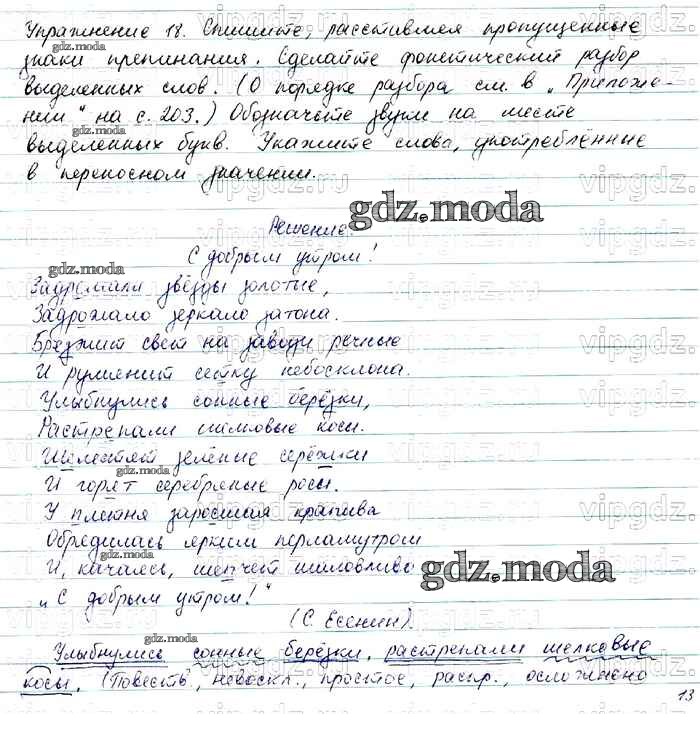 Упражнение 18. Спишите, расставляя пропущенные
знаки препинания. Сделайте фонетический разбор
выделенных слов. (О порядке разбора см. в „Приложе-
нии“ на с. 203.) Обозначьте звуки на месте
выделенных букв. Укажите слова, употреблённые
в переносном значении.
gdz.moda
Решение.
С добрым утром!
Задремали звёзды золотые,
Задрожало зеркало затона.
Брезжит свет на заводи речные
И румянит сетку небосклона.
Улыбнулись сонные берёзки,
Растрепали шёлковые косы.
Шелестят зелёные серёжки
И горят серебряные росы.
У плетня заросшая крапива
Обрядилась ярким перламутром
И, качаясь, шепчет шаловливо
gdz.moda
„С добрым утром!“
(С. Есенин).
Улыбнулись сонные берёзки, растрепали шелковые
косы. (Повеств., невоскл., простое, распр., осложнено
13